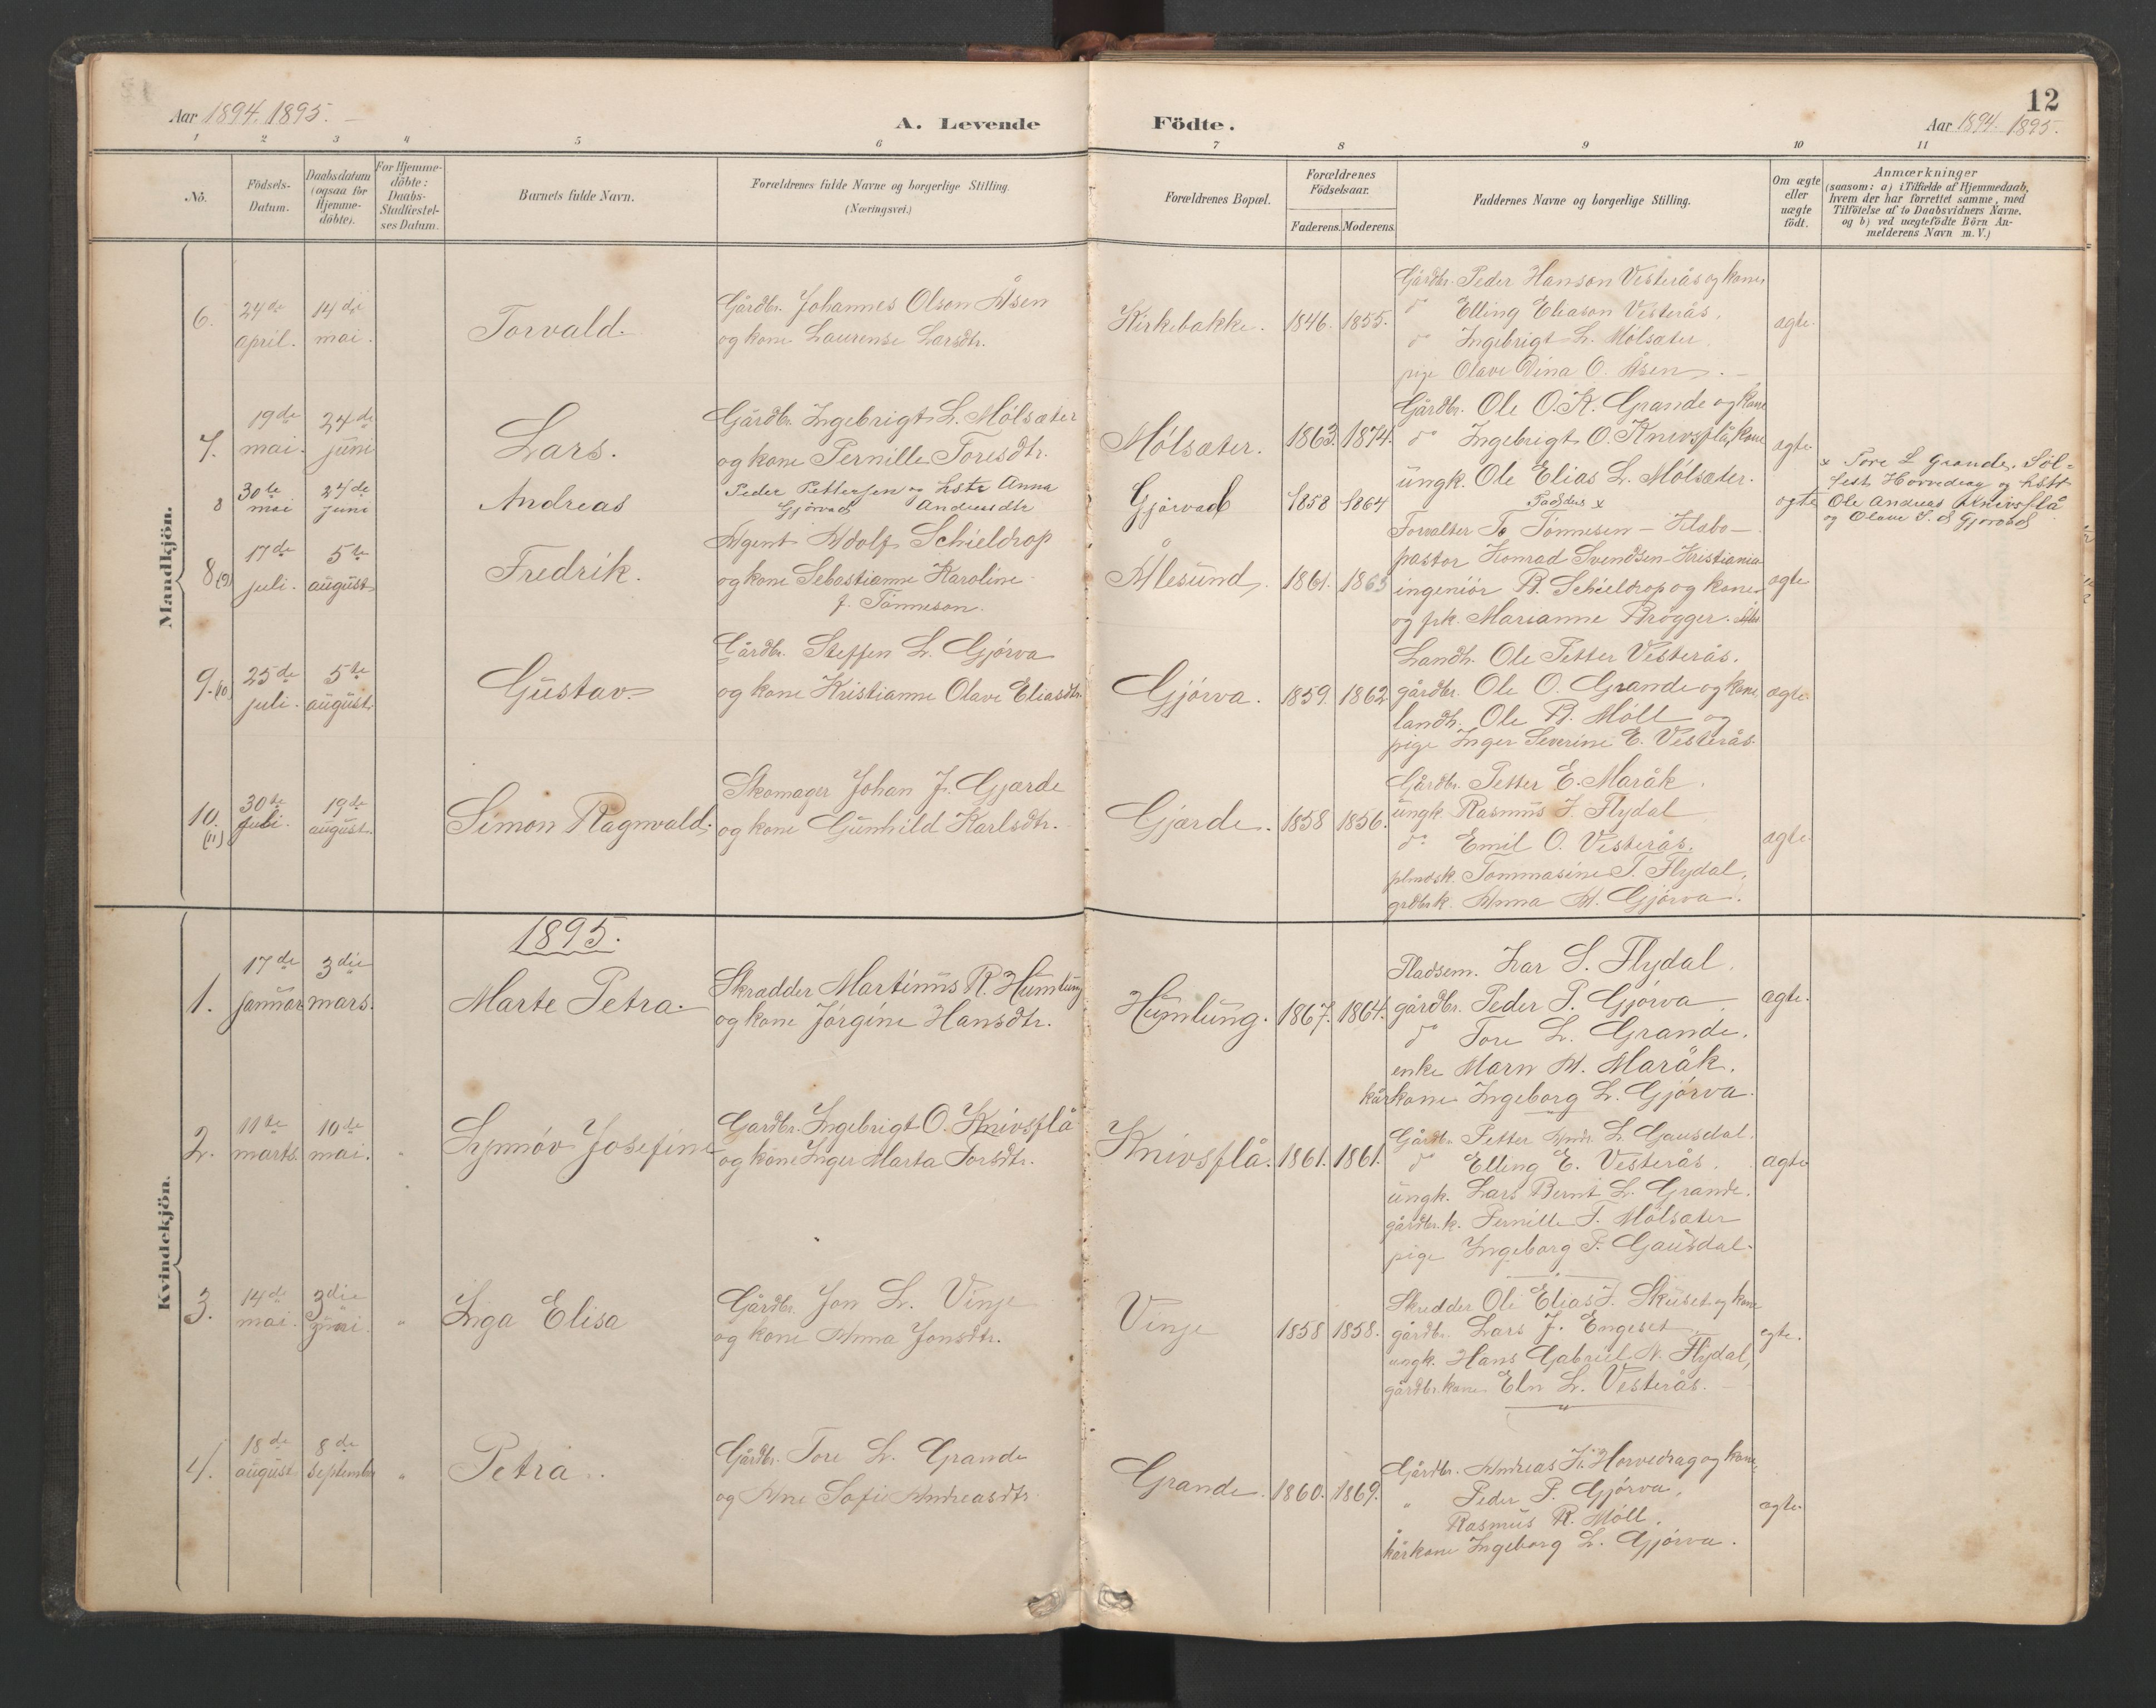 12
Aar 1894. 1895.
A. Levende Födte.
Aar 1894. 1895.
1 2 3 4 5 6 7 8 9 10 11
No.
Födsels-
Datum.
Daabsdatum
(ogsaa for
Hjemme-
döbte).
For Hjemme-
döbte:
Daabs-
Stadfæstel-
ses Datum.
Barnets fulde Navn.
Forældrenes fulde Navne og borgerlige Stilling.
(Næringsvei.)
Forældrenes Bopæl.
Forældrenes
Födselsaar.
Faderens. Moderens.
Faddernes Navne og borgerlige Stilling.
Om ægte
eller
uægte
födt.
Anmærkninger
(saasom: a) i Tilfælde af Hjemmedaab,
hvem der har forrettet samme, med
Tilföielse af to Daabsvidners Navne.
og b) ved uægtefödte Börn An-
melderens Navn m. V.)
Mandkjön.
6.
24de
april.
14de
mai.
Torvald.
Gårdbr. Johannes Olson Åsen
og kone Laurense Larsdtr.
Kirkebakke.
1846. 1855.
Gårdbr. Peder Hanson Vesterås og kone,
do Elling Eliason Vesterås,
do Ingebrigt L. Mölsæter,
pige Olave Dina O. Åsen.
ægte.
7.
19de
mai.
24de
juni
Lars.
Gårdbr. Ingebrigt L. Mölsæter
og kone Pernille Toresdtr.
Mölsæter.
1863. 1874.
Gårdbr. Ole O. K. Grande og kone
do Ingebrigt O. Knivsflå, kone
ungk. Ole Elias L. Mölsæter.
ægte
8
30te
mai
24de
juni
Andreas
Peder Pettersen og Hstr Anna
Gjørvad Andreasdtr
Gjørvad
1858 1864
Faddere x
ægte
x Tore L Grande, Söl-
festh Horvedrag og Hstr
Ole Andreas Knivsflå
og Olave S. d Gjørvad
8 (9)
17de
juli.
5te
august.
Fredrik.
Agent Adolf Schieldrop
og kone Sebastianne Karoline
f. Tönneson.
Ålesund.
1861. 1863
Forvalter T. Tönnesen –
pastor Konrad Svendsen-Kristiania
ingeniör B. Schieldrop og kone
og frk. Marianne Brögger.
ægte
9. (10)
25de
juli.
5te
august.
Gustav
Gårdbr. Steffen L. Gjörva
og kone Kristianne Olave Eliasdtr.
Gjörva.
1859. 1862
Landh. Ole Petter Vesterås.
gårdbr. Ole O. Grande og kone
landh. Ole R. Möll og
pige Inger Severine E. Vesterås.
ægte.
10.
(11)
30te
juli.
19de
august.
Simon Ragnvald.
Skomager Johan J. Gjærde
og kone Gunhild Karlsdtr.
Gjærde.
1858 1856.
Gårdbr. Petter E. Maråk.
ungk. Rasmus J. Flydal
do Emil O. Vesterås.
plmdsk. Tommasine T. Flydal,
grdbrk. Anna M. Gjörva.
ægte
Kvindekjön.
1895.
1.
17de
januar
3die
mars.
Marte Petra.
Skradder Martinus R. Humlung
og kone Jörgine Hansdtr.
Humlung.
1867. 1864.
Pladsem. Ivar S. Flydal.
gårdbr. Peder P. Gjörva
do Tore L. Grande.
enke Marn M. Maråk.
kårkone Ingeborg L. Gjörva.
ægte.
2.
11te
marts
10de
mai.
Synnöv Josefine
Gardbr. Ingebrigt O. Knivsflå
og kone Inger Marta Torsdtr.
Knivsflå.
1861. 1861.
Gårdbr. Petter Andr. L. Gausdal.
do Elling E. Vesterås.
ungk. Lars Bernt L. Grande.
gårdbr.k. Pernille T. Mölsæter
pige Ingeborg P. Gausdal.
ægte
3.
14de
mai.
3die
juni.
Inga Elisa
Gårdbr. Jon L. Vinje
og kone Anna Jonsdtr.
Vinje
1858 1858.
Skredder Ole Elias J. Skuset og kone
gårdbr. Lars J. Engeset
ungk. Hans Gabriel N. Flydal,
gårdbr.kone Eln L. Vesterås.
ægte.
4.
18de
august
8de
september
Petra.
Gårdbr. Tore L. Grande
og Ane Sofie Andreasdtr.
Grande.
1860. 1869.
Gårdbr. Andreas K. Horvedrag og kone,
" Peder P. Gjörva,
Rasmus R. Möll.
kårkone Ingeborg L. Gjörva.
ægte.